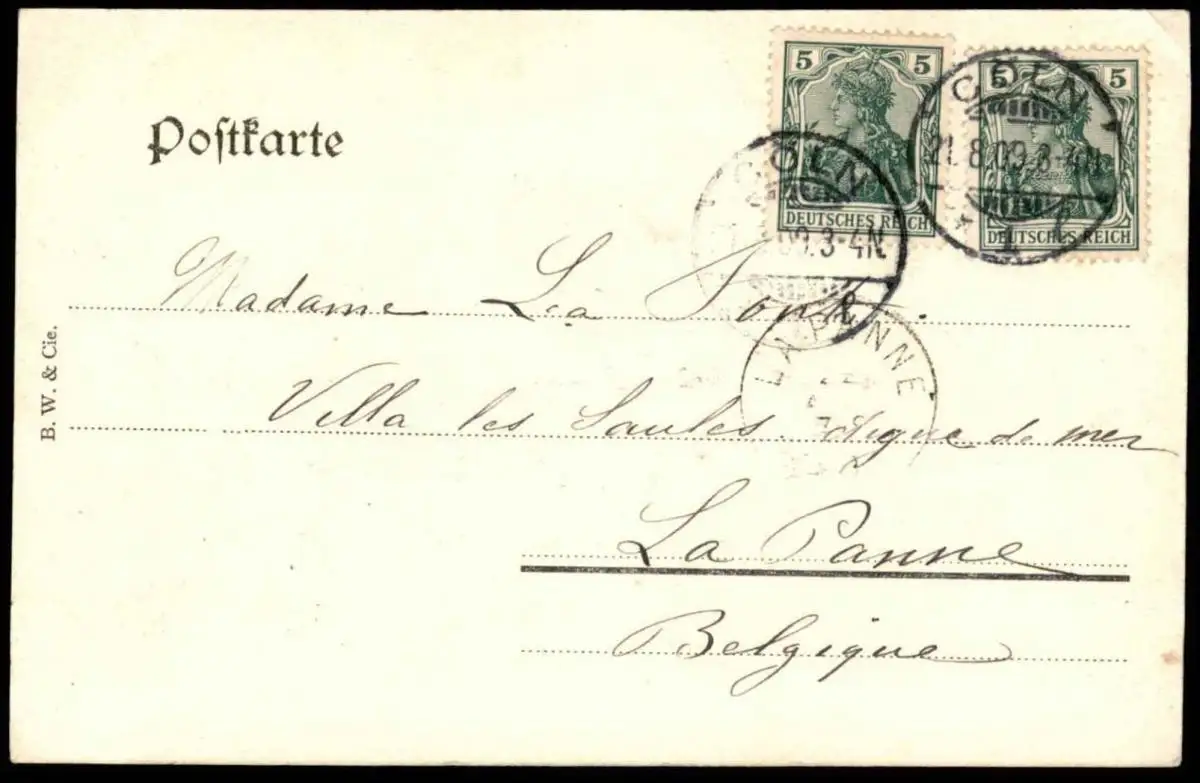 5 5
5 5
DEUTSCHES REICH
DEUTSCHES REICH
CÖLN
21.8.09.3-4N
1
CÖLN
09.3-4N
Poſtkarte
Madame Léa
LA PANNE
Villa les Saules. digue de mer
La Panne
Belgique
B. W. & Cie.